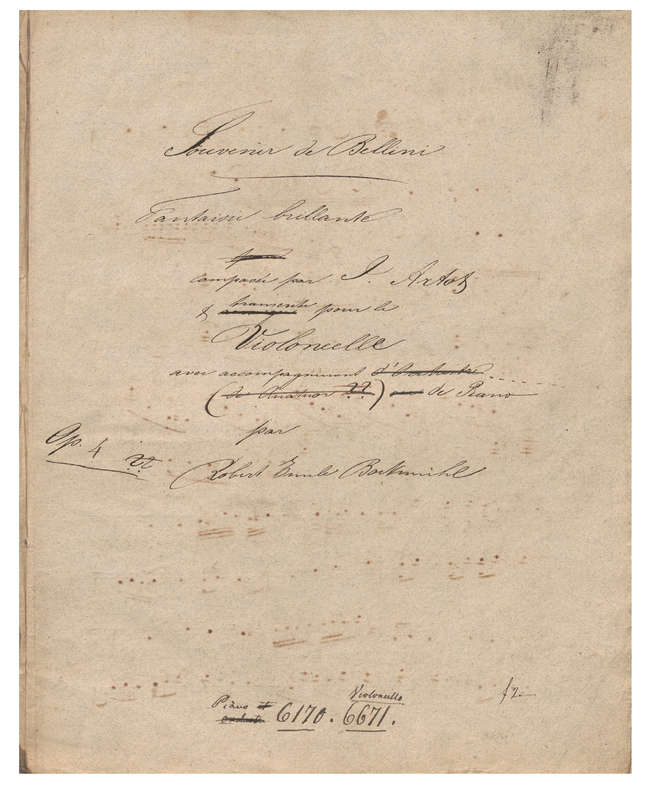 Souvenir de Bellini
Fantaisie brillante
pour
composée par J. Artot
& transcrite pour le
Violoncelle
avec accompagnement d'Orchestre
(de Quatuor ??) ou de Piano
par
Op. 4 ??
Robert Emile Bockmühl
Piano et Violoncelle
orchestre 6170. 6671.
f 2